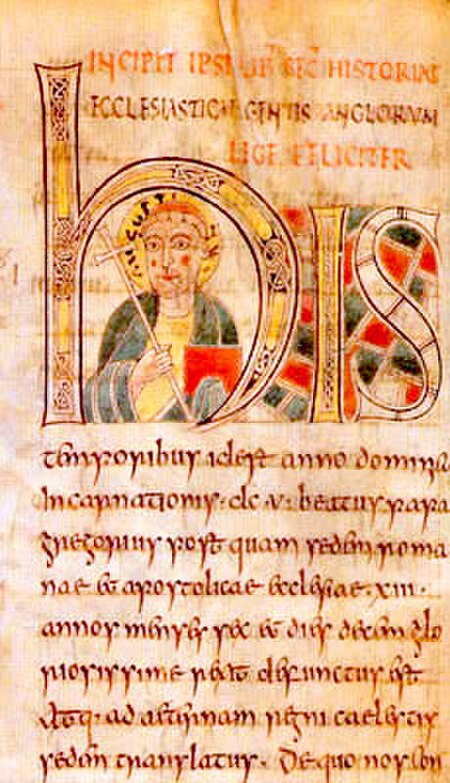 INCIPIT IPSIUS SEC̄ HISTORIAE
ECCLESIASTICAE GENTIS ANGLORUM
LEGE FELICITER
AUGUSTINUS
his
temporibus id est anno dominicae
incarnationis · dc · v · beatus papa
gregorius post quam sedem roma
nae et apostolicae ecclesiae · xiii ·
annos menses sex et dies decem glo
riosissime rexit defunctus est
atq; ad aeternam regni caelestis
sedem translatus · De quo nos con